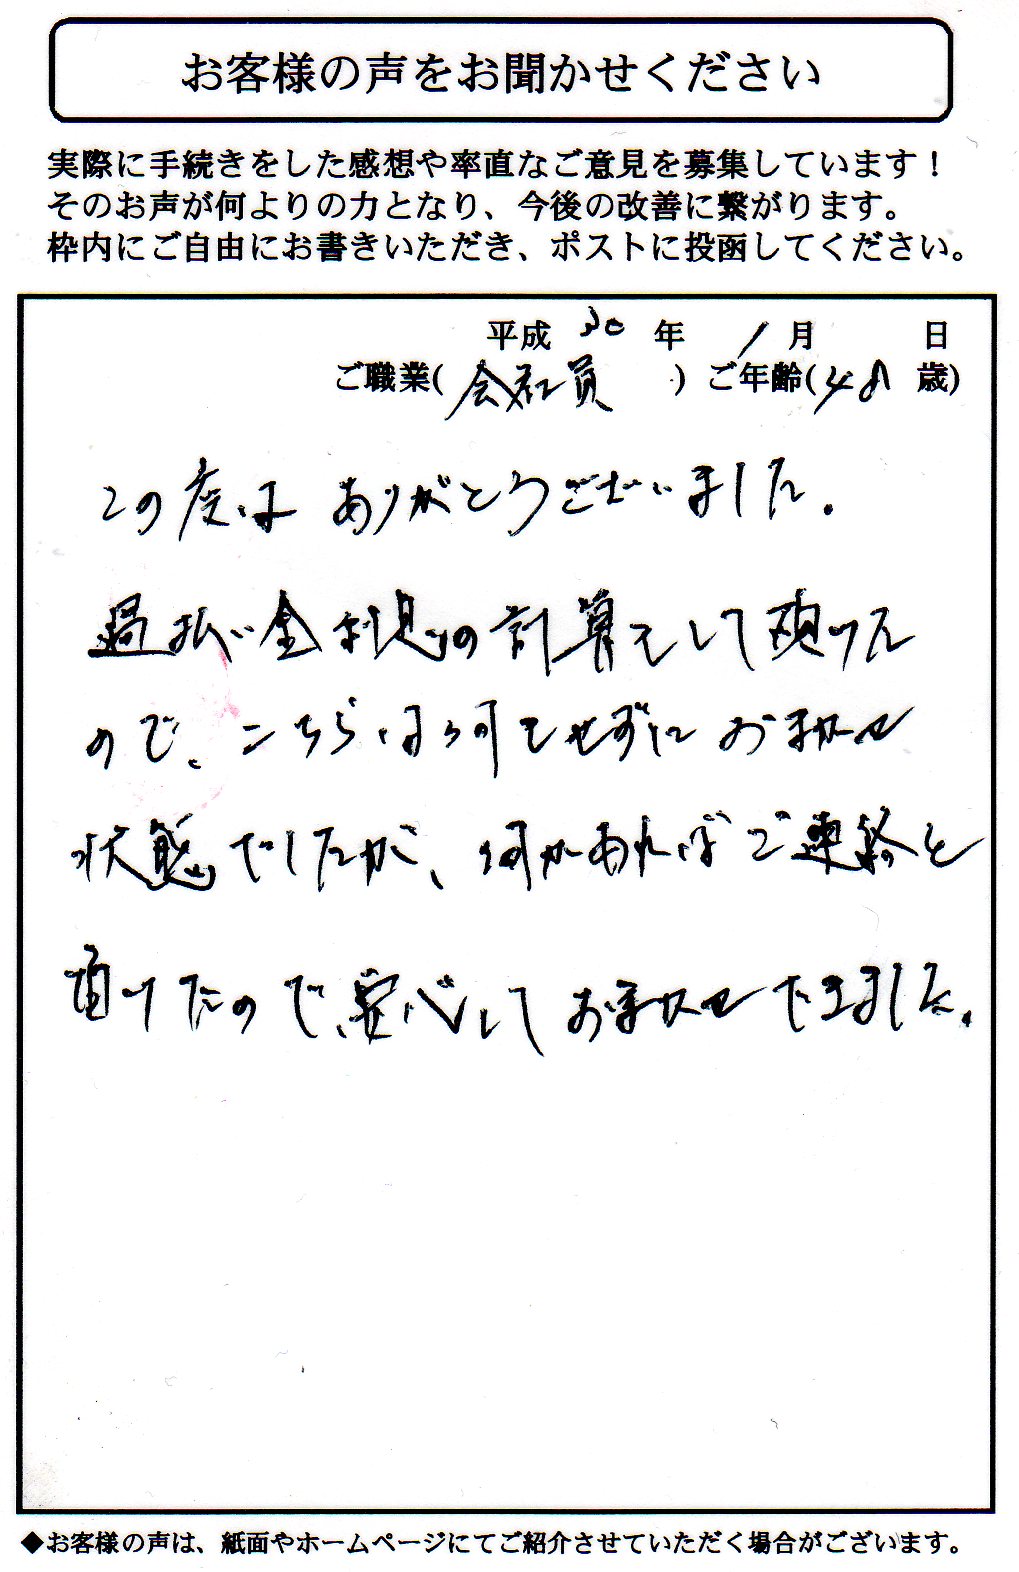 お客様の声をお聞かせください
実際に手続きをした感想や率直なご意見を募集しています！
そのお声が何よりの力となり、今後の改善に繋がります。
枠内にご自由にお書きいただき、ポストに投函してください。
平成 30 年 1 月 日
ご職業( 会社員 ) ご年齢( 48 歳)
この度は ありがとうございました。
過払い金利息の計算をして頂けた
ので、こちらは何もせずに おまかせ
状態でしたが、何かあればご連絡を
頂けたので、安心して おまかせできました。
◆お客様の声は、紙面やホームページにてご紹介させていただく場合がございます。